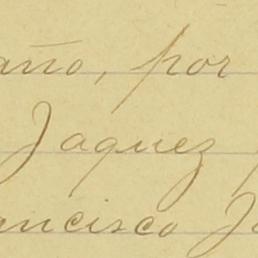 año, por
Jaquez
ancisco